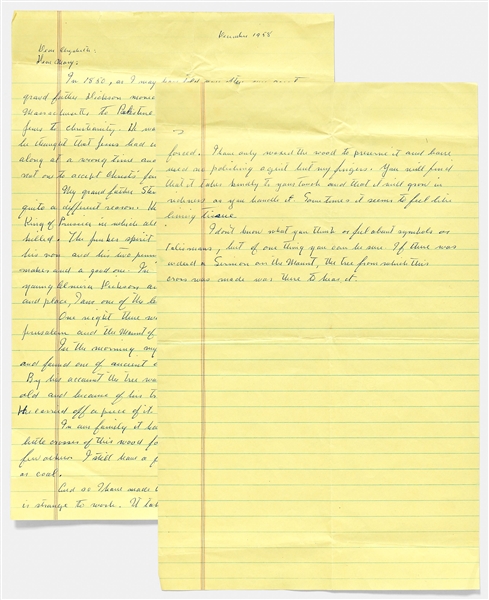 December 1958
Dear Elizabeth:
Dear Mary:
In 1850, as I may have told you
grand father Dickson moved
Massachusetts to Palestine
Jews to Christianity. He wa
he thought that Jesus had
along at a wrong time and
not one to accept Christ's
My grand father Ste
quite a different reason. H
King of Prussia in which all
The Junker spirit
his son and his two
makers and a good one. In
young Elmira Dickson an
and place, I am one of the
One night there wa
Jerusalem and the Mount of
In the morning my
and found one of ancient o
By his account the tree wa
old and because of his tr
He carried off a piece of it
In our family it ha
little crosses of this wood fo
few others. I still have a
as coal.
And so I have made
is strange to work. It tak
forced. I have only waxed the wood to preserve it and have
used no polishing agent but my fingers. You will find
that it takes kindly to your touch and that it will grow in
richness as you handle it. Sometimes it seems to feel like
living tissue.
I don't know what you think or feel about symbols or
talismans, but of one thing you can be sure. If there was
indeed a Sermon on the Mount, the tree from which this
cross was made was there to hear it.